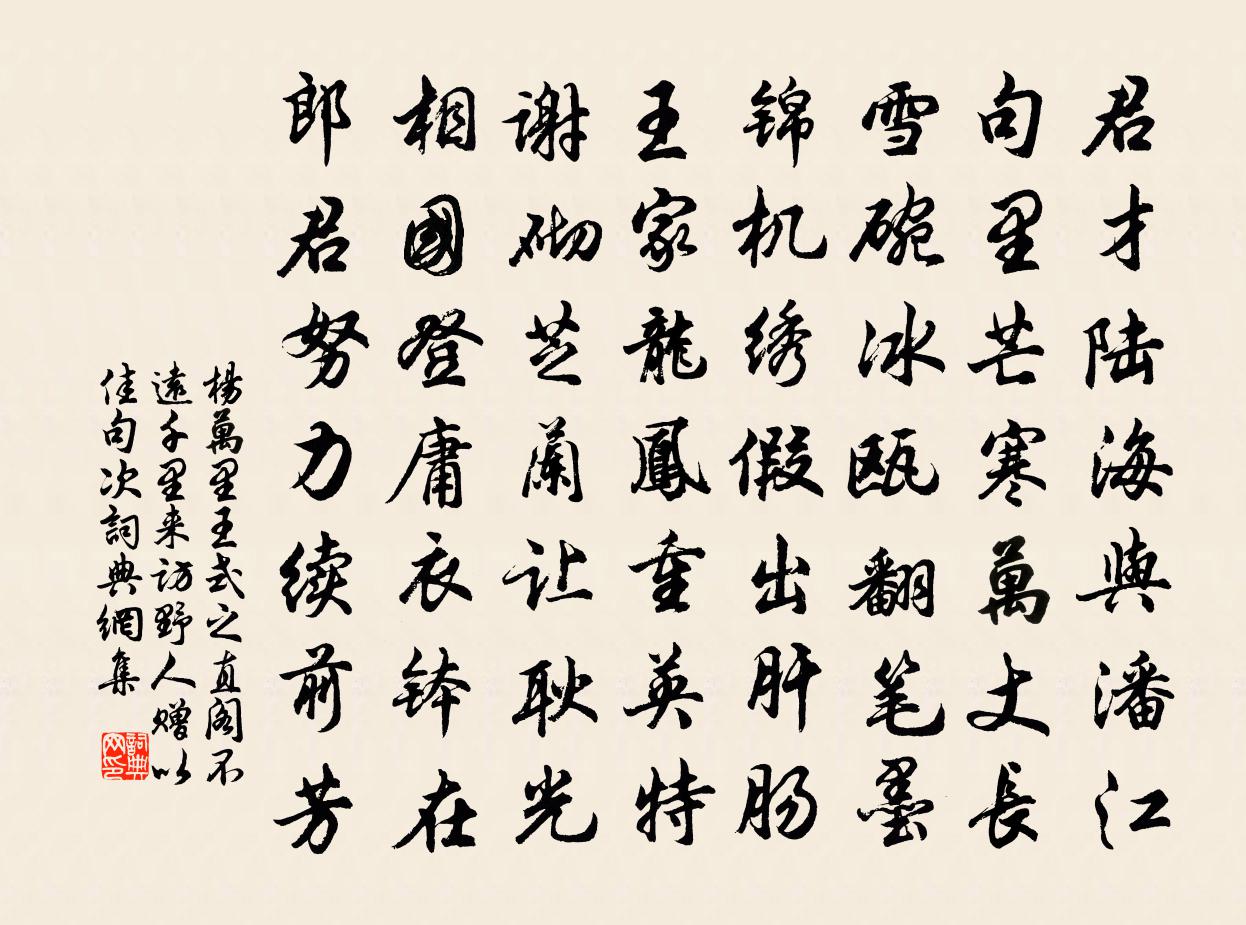 君才陆海與潘江
句里芒寒萬丈長
雪碗冰瓯翻笔墨
锦机绣假出肝肠
王家龍鳳重英特
谢砌芝蘭让耿光
相國登庸衣钵在
郎君努力续前芳
楊萬里王式之直阁不
遠千里来访野人赠以
佳句次詞典網集
詞典
网印